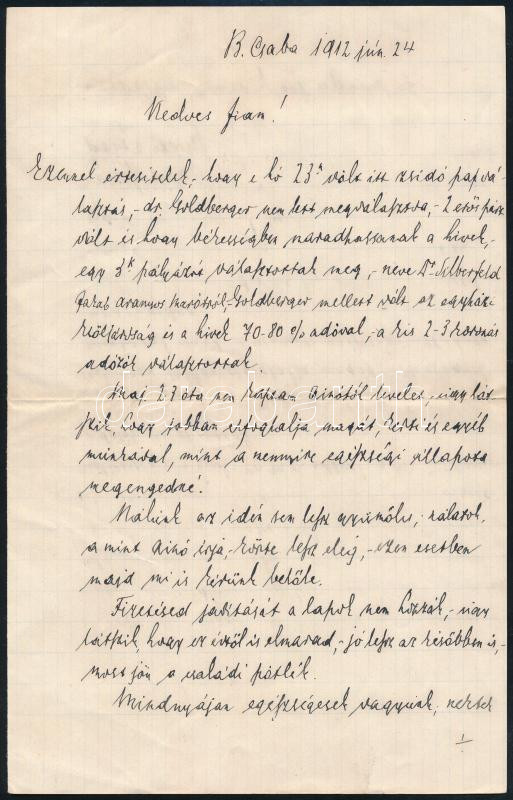 B. Csaba 1912 jún. 24
Kedves fiam!
Ezennel értesitelek, hogy e hó 23ᵃ vólt itt zsidó papvá-
lasztás, - dr. Goldberger nem lett megválasztva, - 2 erős párt
vólt és hogy békességben maradhassanak a hivek,
egy 3ᵏ pályázót választottak meg, - neve Dr. Silberfeld
Jakab aranyos maróthról, - Goldberger mellett vólt az egyház
előljáróság és a hivek 70-80 % adóval, - a kis 2-3 koronás
adózók választottak.
Maj. 27 óta nem kaptam Ainótól levelet, - ugy lát-
szik, hogy jobban elfoglalja magát, kerti és egyéb
munkával, mint a mennyire egészségi állapota
megengedné.
Nálunk az idén sem lesz gyümölcs, - nálatok,
a mint Ainó irja, - körte lesz elég, - ezen esetben
majd mi is kérünk belőle.
Fizetésed javitását a lapok nem hozzák, - ugy
látszik, hogy ez évről is elmarad, - jó lesz az később is, -
most jön a családi pótlék.
Mindnyájan egészségesek vagyunk,
1